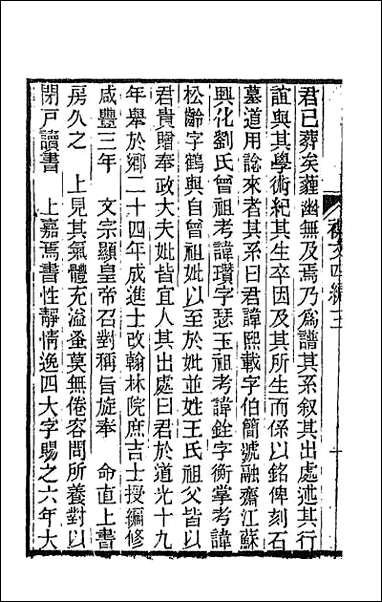 君已葬矣薶幽無及焉乃爲譜其系叙其出處述其行
誼與其學術紀其生卒因及其所生而係以銘俾刻石
墓道用諗來者其系曰君諱熙載字伯簡號融齋江蘇
興化劉氏曾祖考諱瓚字瑟玉祖考諱銓字衡掌考諱
松齡字鶴與自曾祖妣以至於妣並姓王氏祖父皆以
君貴贈奉政大夫妣皆宜人其出處曰君於道光十九
年舉於鄉二十四年成進士改翰林院庶吉士授編修
咸豐三年　文宗顯皇帝召對稱旨旋奉　命直上書
房久之　上見其氣體充溢蚤莫無倦容問所養對以
閉戶讀書　上嘉焉書性靜情逸四大字賜之六年大
襍文四編三
十